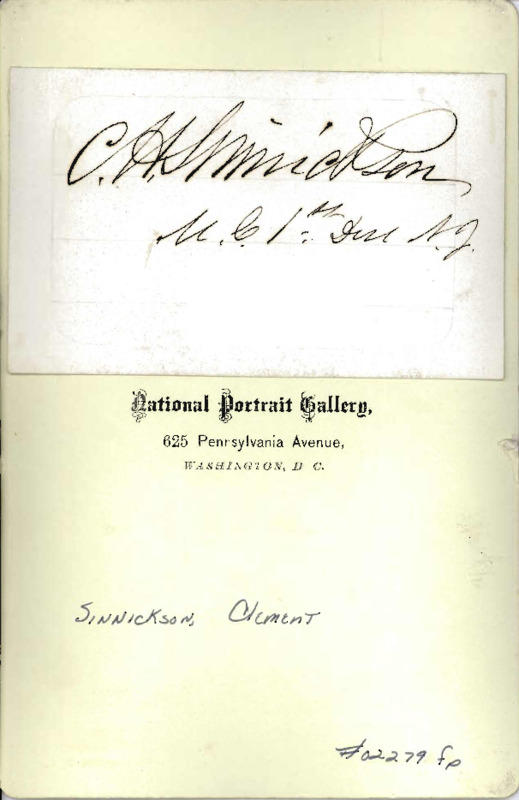 C. H. Sinnickson
M. C. 1st Dist N.J.
National Portrait Gallery,
625 Pennsylvania Avenue,
WASHINGTON, D C.
SINNICKSON, CLEMENT
#02279 fp